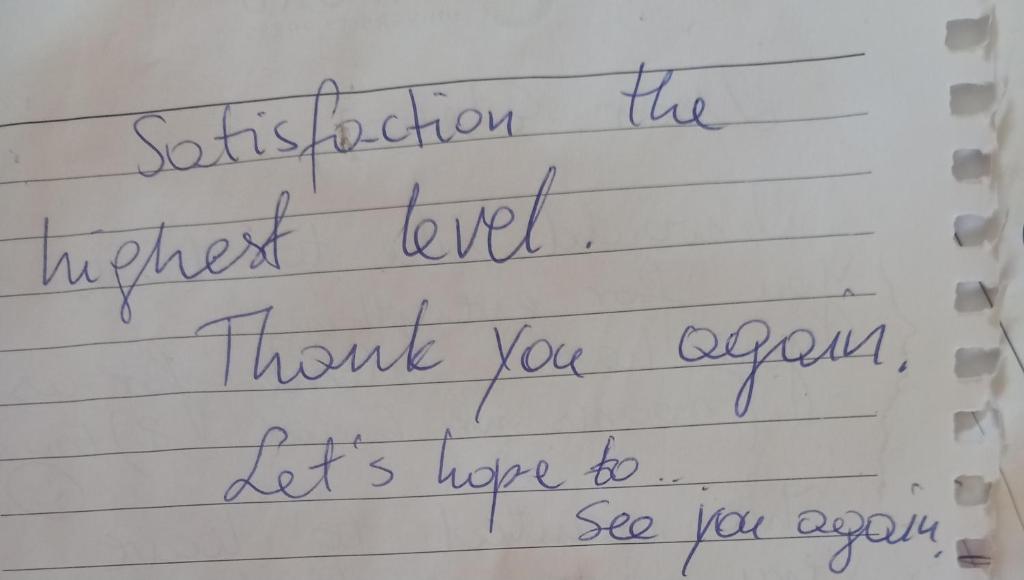 Satisfaction the
highest level.
Thank you again.
Let's hope to..
see you again.